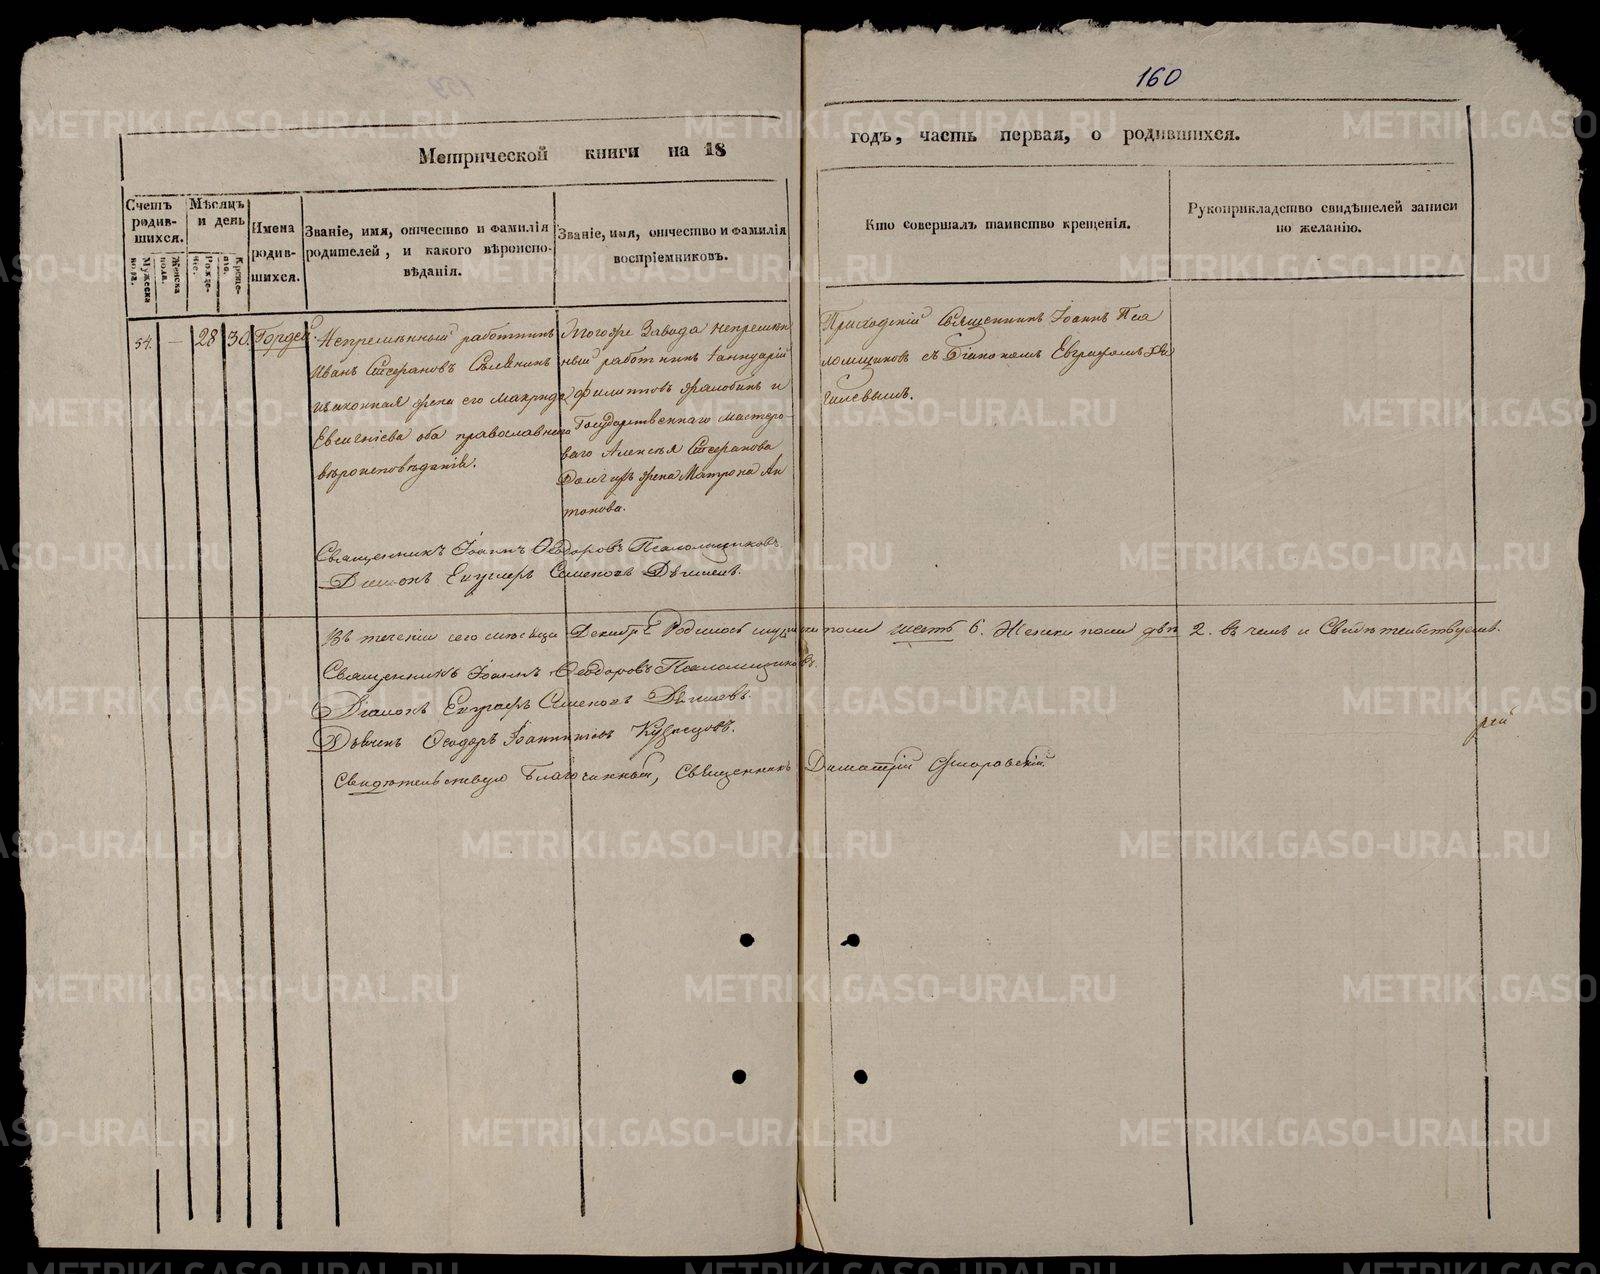 160
Метрической книги на 18
годъ, часть первая, о родившихся.
Счетъ родив-шихся.
Мужеска пола.
Женска пола.
Мѣсяцъ и день
Рожде-нія.
Креще-нія.
Имена родив-шихся.
Званіе, имя, отчество и фамилія
родителей, и какого вѣроиспо-
вѣданія.
Званіе, имя, отчество и фамилія
воспріемниковъ.
Кто совершалъ таинство крещенія.
Рукоприкладство свидѣтелей записи
по желанію.
54.
—
28
30
Гордей
Непремѣнный работникъ
Иванъ Стефановъ
законная жена его Макрида
Евгеніева оба православнаго
вѣроисповѣданія.
Тогоже Завода непремѣн
ный работникъ Іаннуарій
Филиповъ и
Государственнаго мастеро-
ваго Алексѣя Стефанова
жена Матрона Ан
тонова.
Приходскій Священникъ Іоаннъ Пса
ломщиковъ съ Діакономъ Евграфомъ Дя
гилевымъ.
Священникъ Іоаннъ Ѳеодоровъ Псаломщиковъ
Діаконъ Евграфъ Семеновъ Дягилевъ.
Въ теченіи сего мѣсяца Декабря Родилось мужска пола шесть 6. Женска пола двѣ 2. Въ чемъ и Свидѣтельствуемъ.
Священникъ Іоаннъ Ѳеодоровъ Псаломщиковъ.
Діаконъ Евграфъ Семеновъ Дягилевъ.
Дьячекъ Ѳеодоръ Іоанникіевъ Кузнецовъ.
Свидѣтельствую Благочинный, Священникъ Димитрій
METRIKI.GASO-URAL.RU